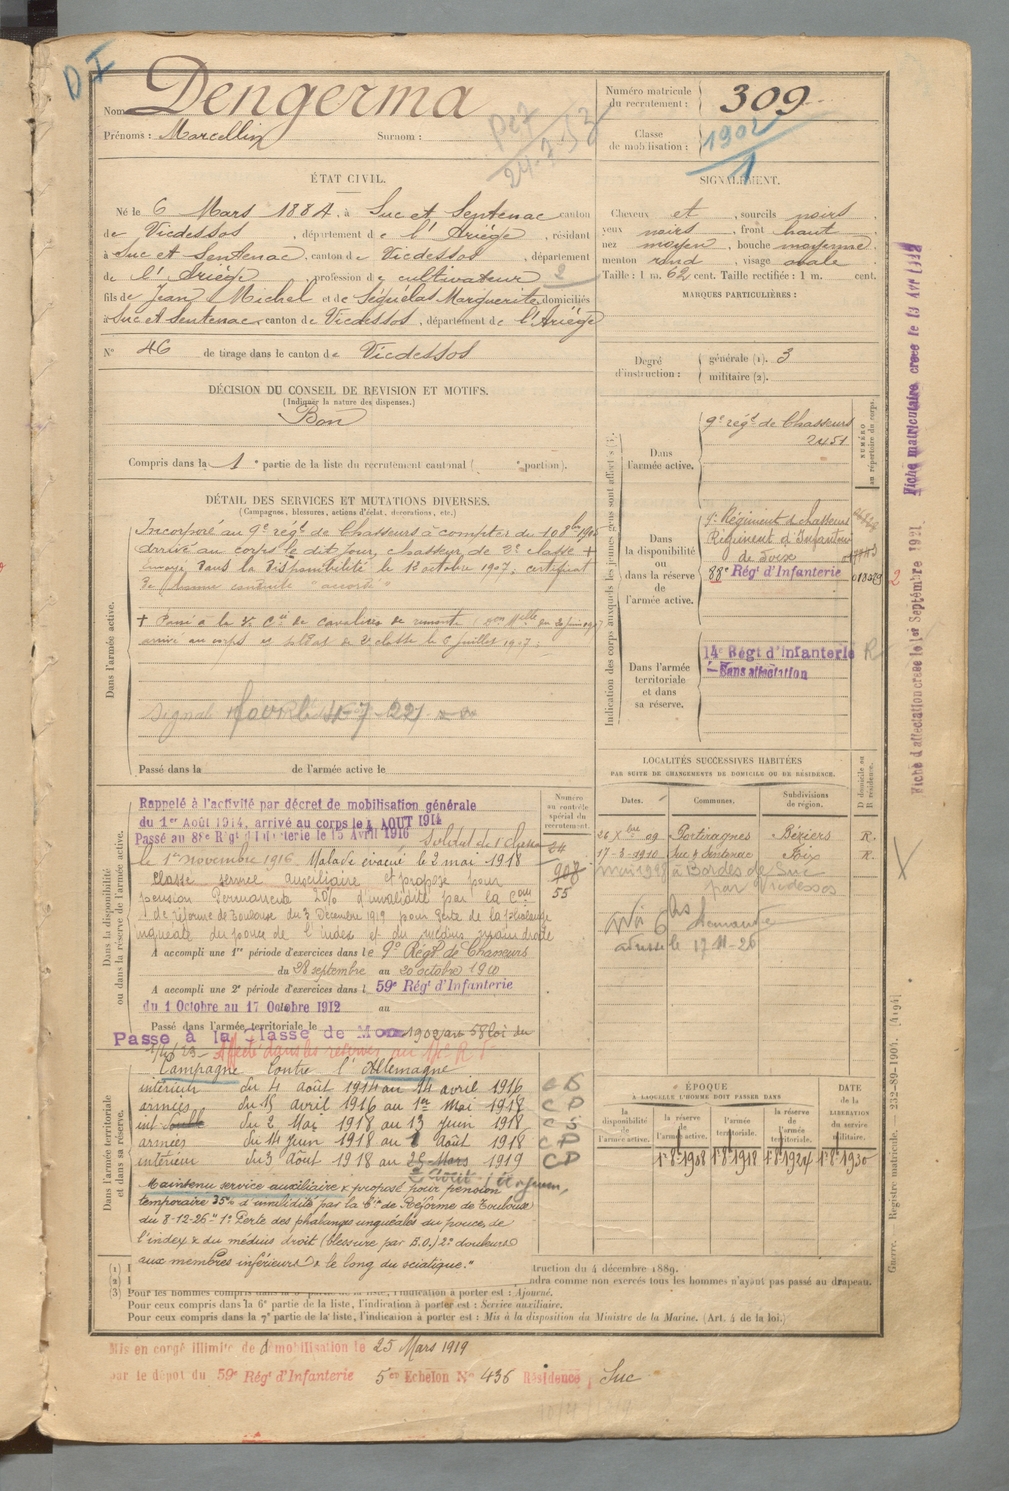 D I
Nom Dengerma
Prénoms : Marcellin Surnom :
Numéro matricule du recrutement : 309
Classe de mobilisation : 1902
1
ÉTAT CIVIL.
Né le 6 Mars 1884, à Suc et Sentenac canton
de Vicdessos, département de l'Ariège, résidant
à Suc et Sentenac, canton de Vicdessos, département
de l'Ariège, profession de cultivateur 2
fils de Jean Michel et de Séguélas Marguerite domiciliés
à Suc et Sentenac, canton de Vicdessos, département de l'Ariège
N° 46 de tirage dans le canton de Vicdessos
SIGNALEMENT.
Cheveux et, sourcils noirs,
yeux noirs, front haut
nez moyen, bouche moyenne,
menton rond, visage ovale.
Taille : 1 m. 62 cent. Taille rectifiée : 1 m. cent.
MARQUES PARTICULIÈRES :
Degré d'instruction : générale (1). 3
militaire (2).
DÉCISION DU CONSEIL DE REVISION ET MOTIFS.
(Indiquer la nature des dispenses.)
Bon
Compris dans la 1e partie de la liste du recrutement cantonal ( e portion).
DÉTAIL DES SERVICES ET MUTATIONS DIVERSES.
(Campagnes, blessures, actions d'éclat, décorations, etc.)
Dans l'armée active.
Incorporé au 9e régt de Chasseurs à compter du 10 8bre 1905
arrivé au corps le dit jour, chasseur de 2e classe +
envoyé dans la disponibilité le 12 octobre 1907, certificat
de bonne conduite "accordé"
+ Passé à la Cie de cavaliers de remonte
arrivé au corps et soldat de 2e classe le 6 juillet 1907.
Passé dans la de l'armée active le
Indication des corps auxquels les jeunes gens sont affectés (3).
NUMÉRO au répertoire du corps.
Dans l'armée active.
9e régt de Chasseurs
2451
Dans la disponibilité ou dans la réserve de l'armée active.
9e Régiment de chasseurs
Régiment d'Infanterie
de Foix
88e Régt d'Infanterie
Dans l'armée territoriale et dans sa réserve.
14e Régt d'Infanterie R
Sans affectation
Fiche matriculaire créée le
Fiche d'affectation créée le 1er Septembre 1921
LOCALITÉS SUCCESSIVES HABITÉES
PAR SUITE DE CHANGEMENTS DE DOMICILE OU DE RÉSIDENCE.
D domicile ou R résidence.
Dates. Communes. Subdivisions de région.
26 Xbre 09 Portiragnes Béziers R.
17-3-1910 Suc et Sentenac Foix R.
à Bordes de Suc
par Vicdessos
adresse le 17-11-26
Dans la disponibilité ou dans la réserve de l'armée active.
Numéro au contrôle spécial du recrutement.
908
55
Rappelé à l'activité par décret de mobilisation générale
du 1er Août 1914, arrivé au corps le 4 AOUT 1914
Passé au 88e Régt d'Infanterie le 15 Avril 1916 Soldat de 1e classe
le 1er novembre 1916. Malade évacué le 2 mai 1918
Classé service auxiliaire et proposé pour
pension permanente 20% d'invalidité par la Con
de réforme de Toulouse du 3 Décembre 1919 pour perte de la phalange
unguéale du pouce de l'index et du médius main droite
A accompli une 1re période d'exercices dans le 9e Régt de Chasseurs
du 28 septembre au 20 octobre 1910
A accompli une 2e période d'exercices dans l 59e Régt d'Infanterie
du 1 Octobre au 17 Octobre 1912 au
Passé dans l'armée territoriale le
Passé à la classe de Mob 1902 art 58 loi du
Affecté dans les réserves au
Dans l'armée territoriale et dans sa réserve.
Campagne contre l'Allemagne
intérieur du 4 août 1914 au 14 avril 1916 CS
armées du 15 avril 1916 au 1er Mai 1918 CD
int du 2 Mai 1918 au 13 Juin 1918 CS
armées du 14 Juin 1918 au Août 1918 CD
intérieur du 3 Août 1918 au 25 Mars 1919 CD
Maintenu service auxiliaire & proposé pour pension
temporaire 35% d'invalidité par la Con de Réforme de Toulouse
du 8-12-26 "1° Perte des phalanges unguéales du pouce, de
l'index & du médius droit (blessure par E.O.) 2° douleurs
aux membres inférieurs & le long du sciatique."
ÉPOQUE
A LAQUELLE L'HOMME DOIT PASSER DANS
DATE de la LIBÉRATION du service militaire.
la disponibilité de l'armée active. la réserve de l'armée active. l'armée territoriale. la réserve de l'armée territoriale.
1r 8bre 1908 1r 8bre 1918 1r 8bre 1924 1r 8bre 1930
Guerre. — Registre matricule. — 232-89-1904. [4194]
(1)
(2)
(3)
truction du 4 décembre 1889.
ndra comme non exercés tous les hommes n'ayant pas passé au drapeau.
Pour les hommes compris dans la 5e partie de la liste, l'indication à porter est : Ajourné.
Pour ceux compris dans la 6e partie de la liste, l'indication à porter est : Service auxiliaire.
Pour ceux compris dans la 7e partie de la liste, l'indication à porter est : Mis à la disposition du Ministre de la Marine. (Art. 4 de la loi.)
Mis en congé illimité de démobilisation le 25 Mars 1919
par le dépôt du 59e Régt d'Infanterie 5e Echelon N° 436 Résidence, Suc